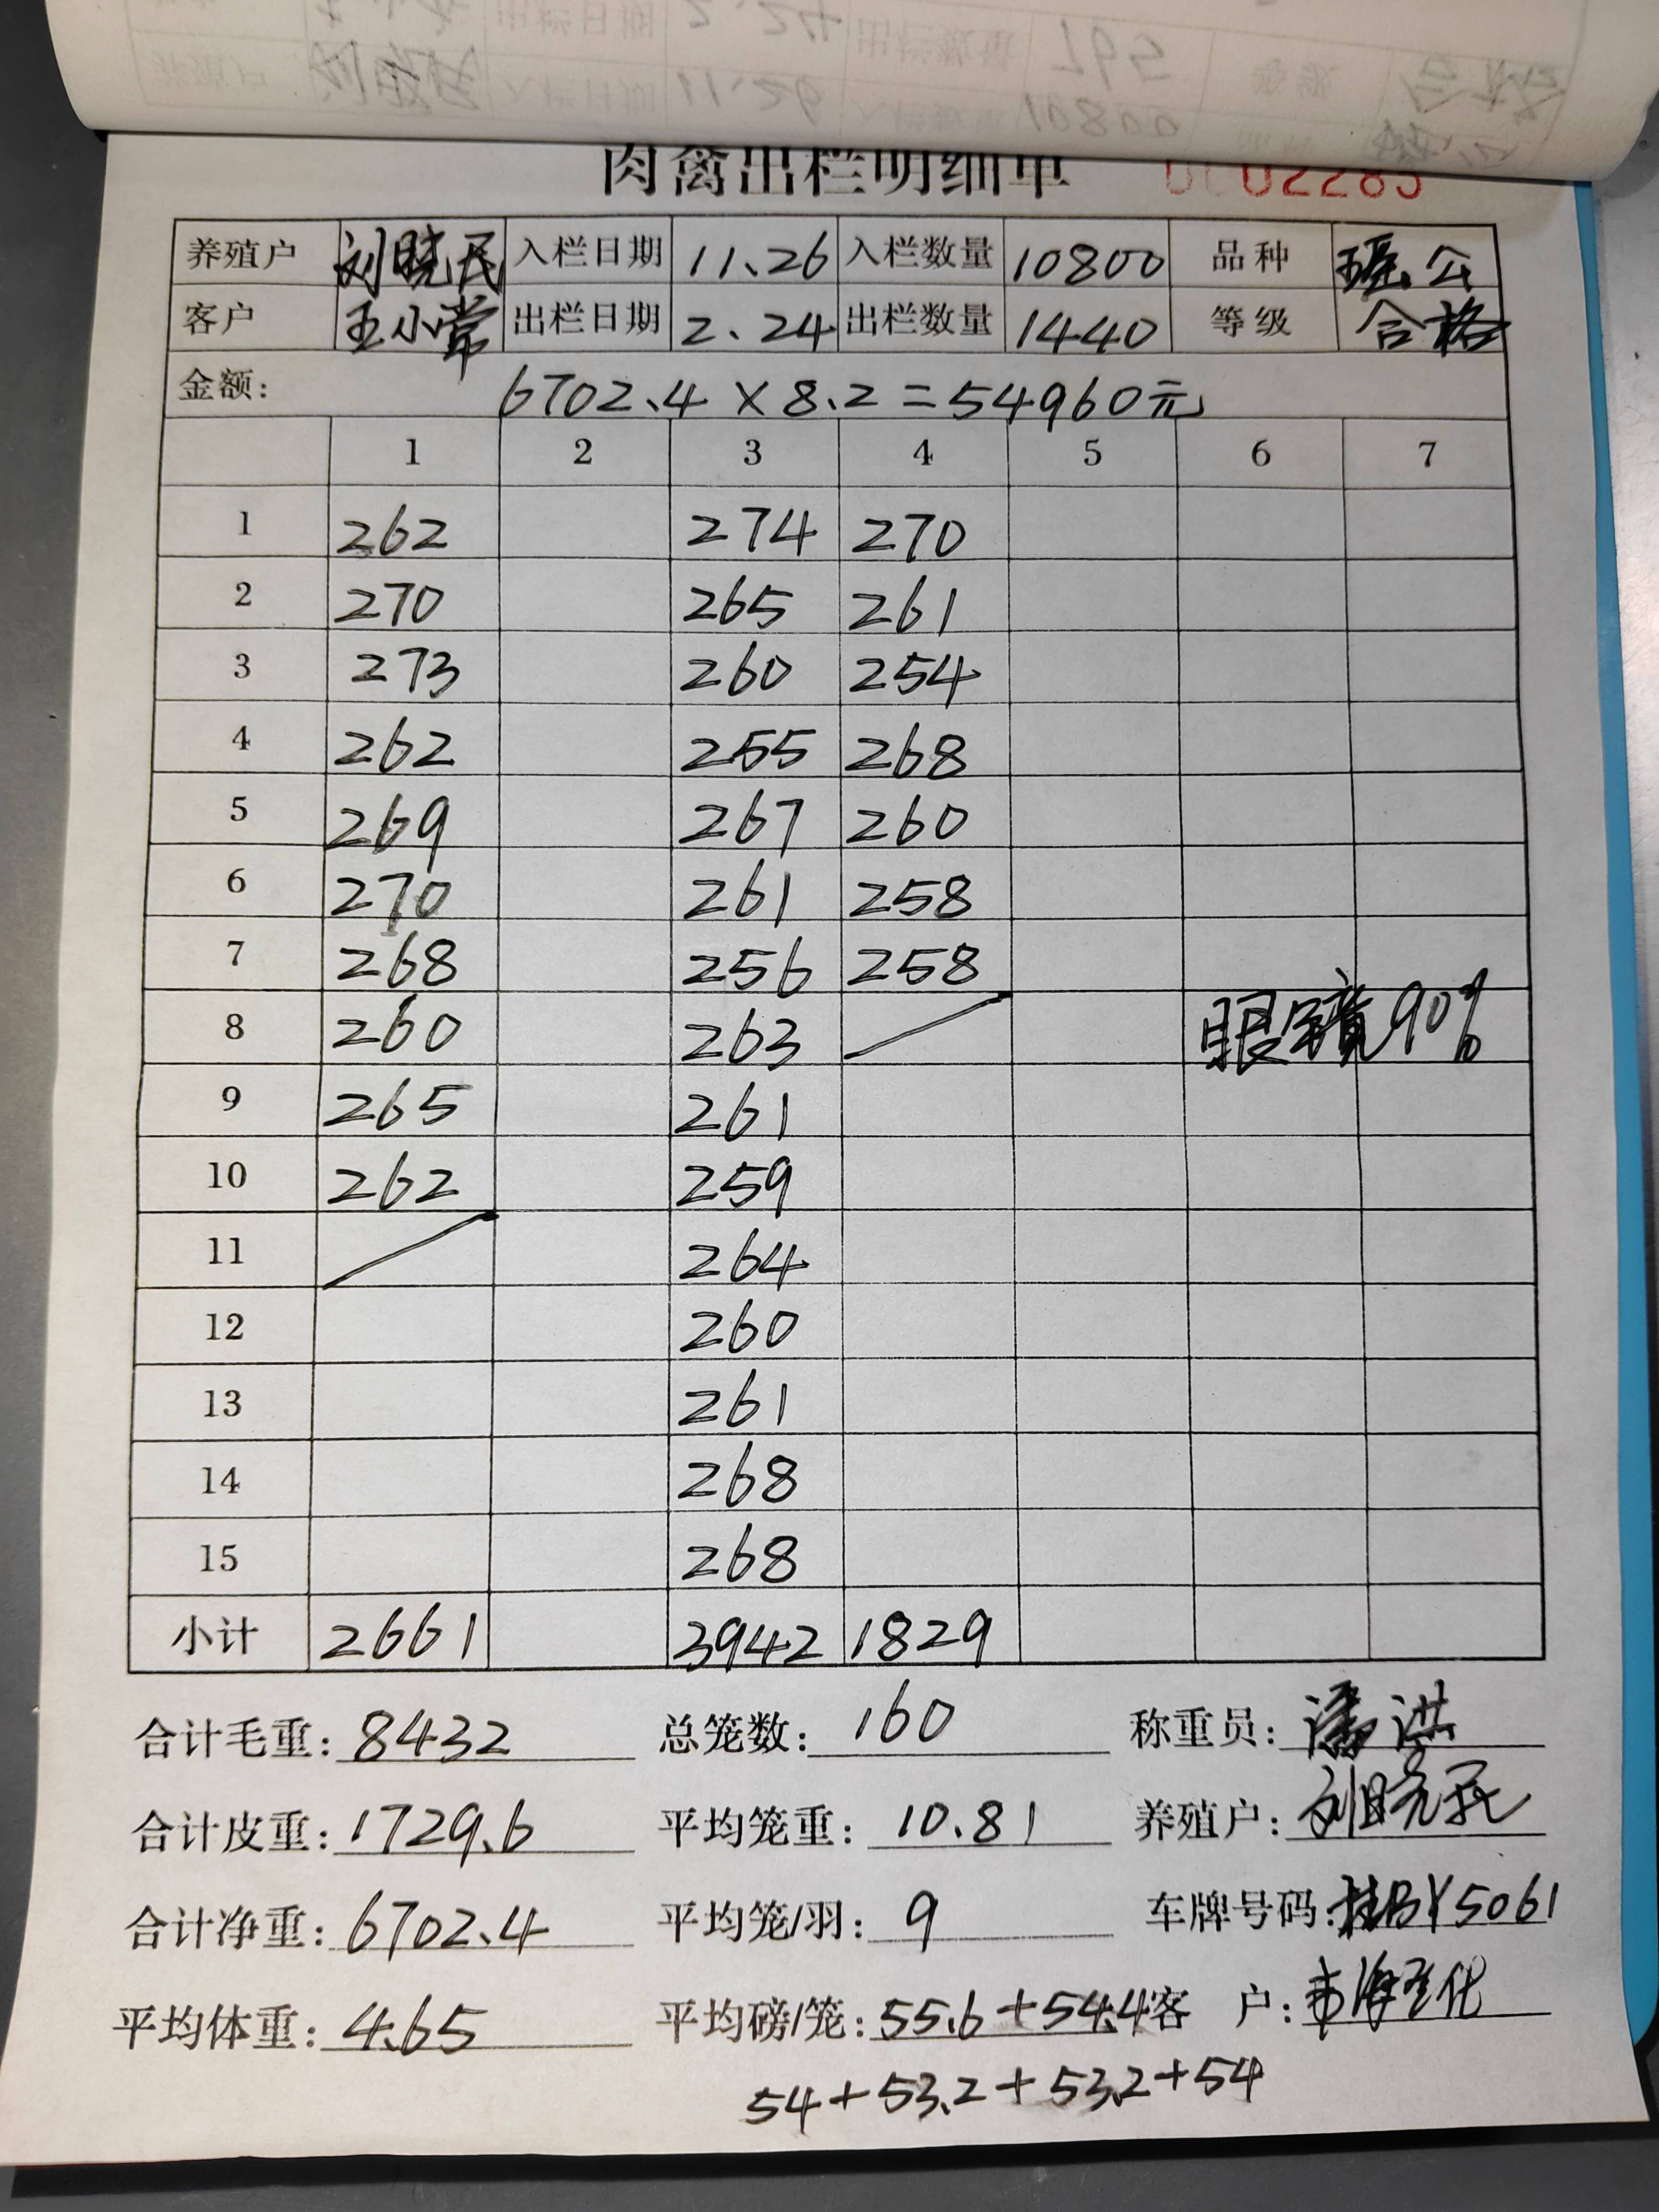 肉禽出栏明细单 0002285
养殖户 刘晓民 入栏日期 11.26 入栏数量 10800 品种 瑶公
客户 王小常 出栏日期 2.24 出栏数量 1440 等级 合格
金额: 6702.4×8.2=54960元
1 2 3 4 5 6 7
1 262 274 270
2 270 265 261
3 273 260 254
4 262 255 268
5 269 267 260
6 270 261 258
7 268 256 258
8 260 263 眼镜90%
9 265 261
10 262 259
11 264
12 260
13 261
14 268
15 268
小计 2661 3942 1829
合计毛重: 8432 总笼数: 160 称重员: 潘洪
合计皮重: 1729.6 平均笼重: 10.81 养殖户: 刘晓民
合计净重: 6702.4 平均笼/羽: 9 车牌号码: 桂BY5061
平均体重: 4.65 平均磅/笼: 55.6+54.4 客户:
54+53.2+53.2+54